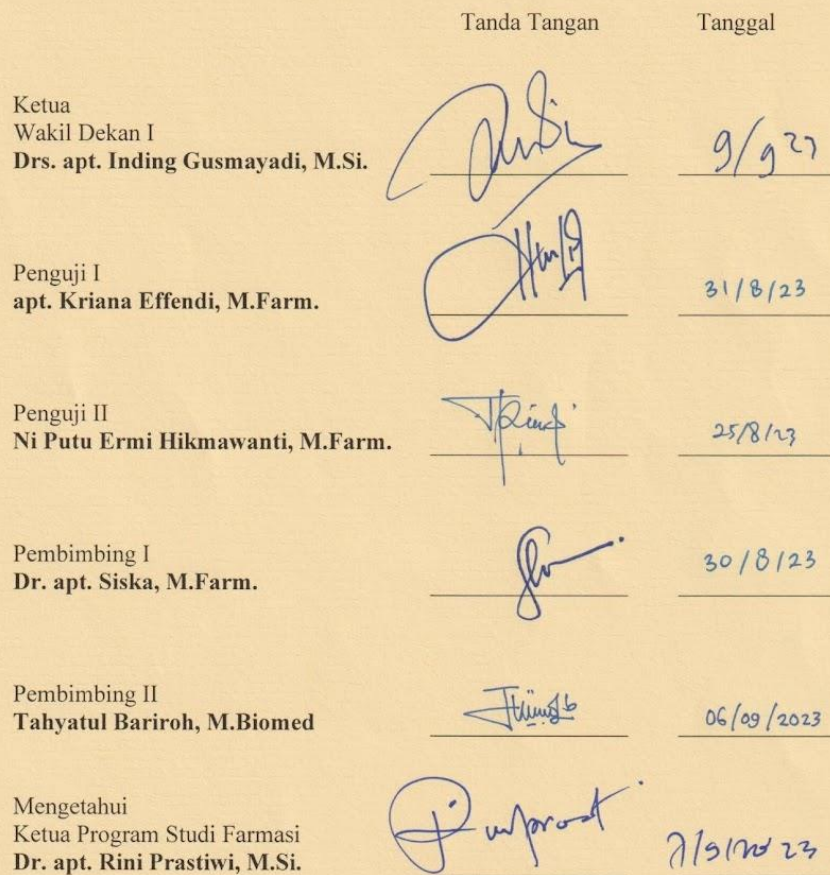 Tanda Tangan Tanggal
Ketua
Wakil Dekan I
Drs. apt. Inding Gusmayadi, M.Si. 9/9 23
Penguji I
apt. Kriana Effendi, M.Farm. 31/8/23
Penguji II
Ni Putu Ermi Hikmawanti, M.Farm. 25/8/23
Pembimbing I
Dr. apt. Siska, M.Farm. 30/8/23
Pembimbing II
Tahyatul Bariroh, M.Biomed 06/09/2023
Mengetahui
Ketua Program Studi Farmasi
Dr. apt. Rini Prastiwi, M.Si.